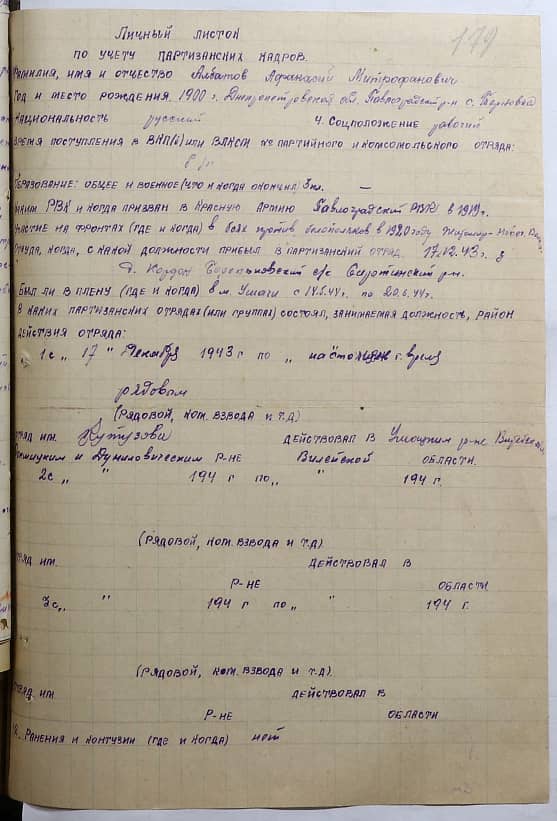 179
Личный листок
по учету партизанских кадров.
Фамилия, имя и отчество Албатов Афанасий Митрофанович
Год и место рождения 1900 г. Днепропетровская обл. Павлоградский р-н с. Терновка
Национальность русский 4. Соцположение рабочий
Время поступления в ВКП(б) или ВЛКСМ партийного и комсомольского отряда:
б/п
Образование: общее и военное (что и когда окончил) 3 кл. —
Каким РВК и когда призван в Красную Армию Павлоградский РВК в 1919 г.
Участие на фронтах (где и когда) в боях против белополяков в 1920 году
Откуда, когда, с какой должности прибыл в партизанский отряд. 17.12.43 г. з
д. с/с Сиротинский р-н.
Был ли в плену (где и когда) в м. Ушачи с 14.5.44 г. по 20.6.44 г.
В каких партизанских отрядах (или группах) состоял, занимаемая должность, район
действия отряда:
1 с „ 17 " Декабря 1943 г по „ настоящее г. время
рядовым
(рядовой, ком. взвода и т.д)
отряд им. Кутузова действовал в Ушацким р-не
и Дуниловическим р-не Вилейской области.
2с „ " 194 г по „ " 194 г.
(рядовой, ком. взвода и т.д)
отряд им. действовал в
р-не области
3с „ " 194 г по „ " 194 г.
(рядовой, ком. взвода и т.д).
отряд им. действовал в
р-не области
Ранения и контузии (где и когда) нет